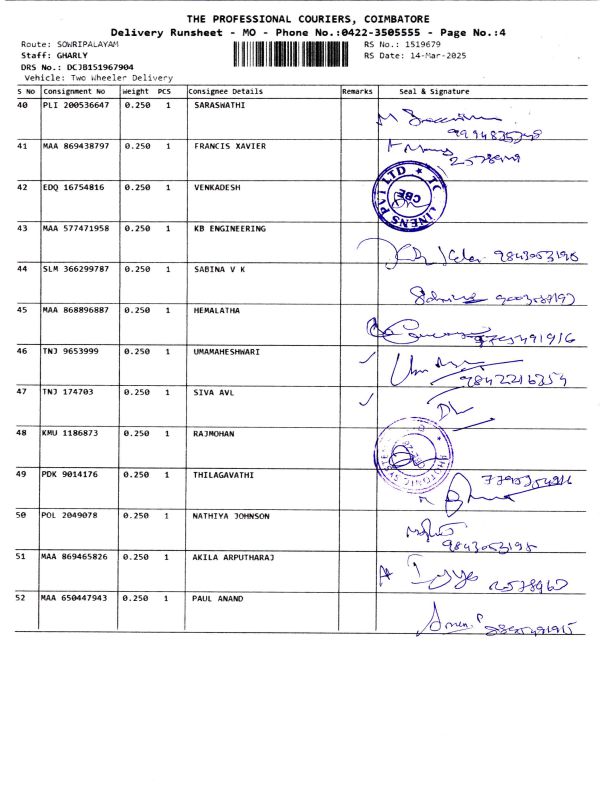 THE PROFESSIONAL COURIERS, COIMBATORE
Delivery Runsheet - MO - Phone No.:0422-3505555 - Page No.:4
Route: SOWRIPALAYAM RS No.: 1519679
Staff: GHARLY RS Date: 14-Mar-2025
DRS No.: DCJB151967904
Vehicle: Two Wheeler Delivery
S No Consignment No Weight PCS Consignee Details Remarks Seal & Signature
40 PLI 200536647 0.250 1 SARASWATHI
41 MAA 869438797 0.250 1 FRANCIS XAVIER
42 EDQ 16754816 0.250 1 VENKADESH
CBE
43 MAA 577471958 0.250 1 KB ENGINEERING
9843053198
44 SLM 366299787 0.250 1 SABINA V K
45 MAA 868896887 0.250 1 HEMALATHA
46 TNJ 9653999 0.250 1 UMAMAHESHWARI
9842216354
47 TNJ 174703 0.250 1 SIVA AVL
48 KMU 1186873 0.250 1 RAJMOHAN
49 PDK 9014176 0.250 1 THILAGAVATHI
50 POL 2049078 0.250 1 NATHIYA JOHNSON
9843053198
51 MAA 869465826 0.250 1 AKILA ARPUTHARAJ
52 MAA 650447943 0.250 1 PAUL ANAND